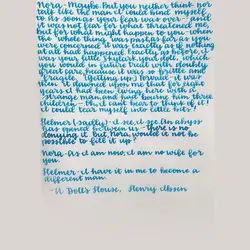 Nora - Maybe. But you neither think nor
talk like the man I could bind myself
to. As soon as your fear was over - and
it was not fear for what threatened me,
but for what might happen to you - when
the whole thing was past, as far as you
were concerned it was exactly as if nothing
at all had happened. Exactly as before, I
was your little Skylark, your doll, which
you would in future treat with doubly
great care, because it was so brittle and
fragile. (Getting up.) Torvald - it was
then it dawned upon me that for eight
years I had been living here with a
strange man and had borne him three
children - Oh, I can't bear to think of it! I
could tear myself into little bits!
Helmer (sadly) - I see, I see. An abyss
has opened between us - there is no
denying it. But, Nora, would it not be
possible to fill it up?
Nora - As I am now, I am no wife for
you.
Helmer - I have it in me to become a
different man.
- A Doll's House, Henry Ibsen